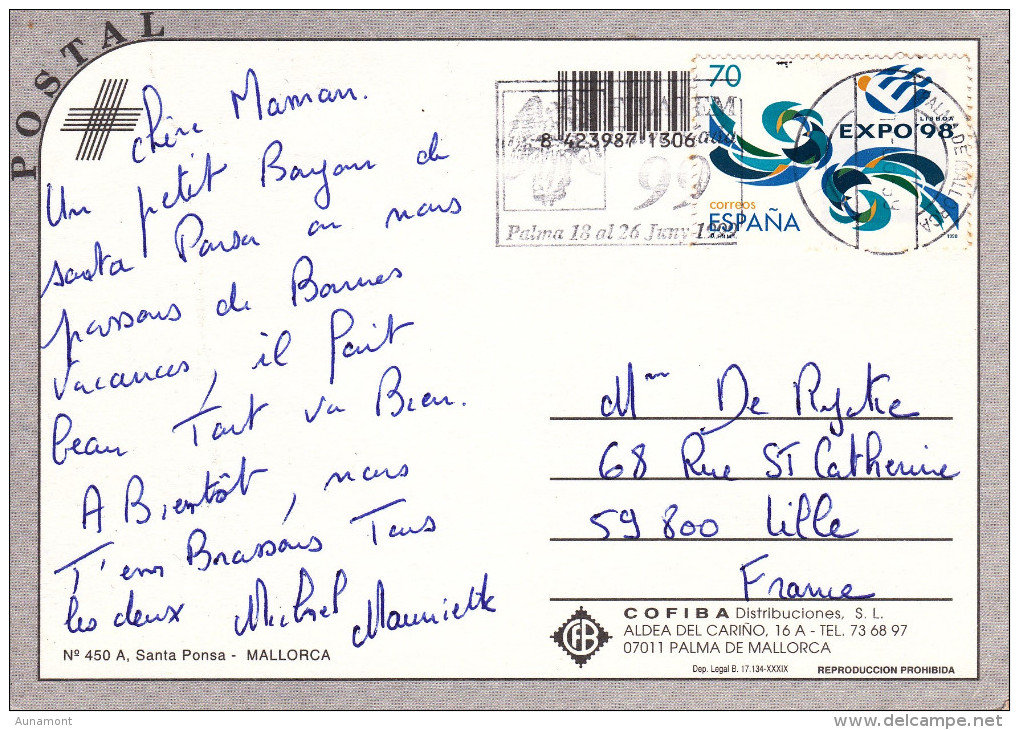 POSTAL
chère Maman.
Un petit Bonjour de
santa Ponsa ou nous
passons de Bonnes
Vacances, il fait
beau Tout va Bien.
A Bientôt, nous
T'embrassons Tous
les deux Michel Mauricette
Nº 450 A, Santa Ponsa - MALLORCA
8 423987 1306
99
Palma 18 al 26 Juny 1999
70
LISBOA
EXPO'98
correos
ESPAÑA
1998
PALMA DE MALLORCA
Mme De Rycke
68 Rue ST Catherine
59 800 Lille
France
COFIBA Distribuciones, S. L.
ALDEA DEL CARIÑO, 16 A - TEL. 73 68 97
07011 PALMA DE MALLORCA
Dep. Legal B. 17.134-XXXIX REPRODUCCION PROHIBIDA
Aunamont
delcampe.net